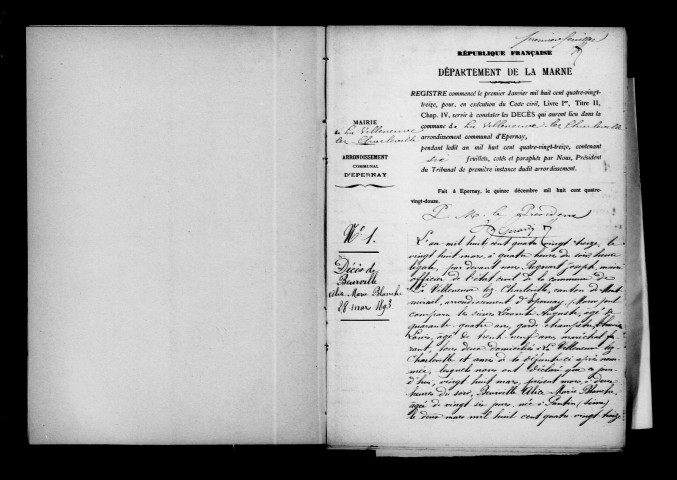 premier feuillet
RÉPUBLIQUE FRANÇAISE
DÉPARTEMENT DE LA MARNE
REGISTRE commencé le premier Janvier mil huit cent quatre-vingt-
treize, pour, en exécution du Code civil, Livre Ier, Titre II,
Chap. IV, servir à constater les DÉCÈS qui auront lieu dans la
commune de La Villeneuve lez Charleville
arrondissement communal d'Epernay,
pendant ledit an mil huit cent quatre-vingt-treize, contenant
six feuillets, cotés et paraphés par Nous, Président
du Tribunal de première instance dudit arrondissement.
Fait à Epernay, le quinze décembre mil huit cent quatre-
vingt-douze.
P. M. le Président
MAIRIE
de La Villeneuve
lez Charleville
ARRONDISSEMENT
COMMUNAL
D'EPERNAY
No 1.
Décès de
Beurville
Alix Marie Blanche
28 mars 1893
L'an mil huit cent quatre vingt treize, le
vingt huit mars, à quatre heures du soir, heure
légale, par devant nous Regnart Joseph, maire
officier de l'état civil de la commune de
La Villeneuve lez Charleville, canton de Mont
mirail, arrondissement d'Epernay, (Marne) sont
comparu les sieurs Auguste, âgé de
quarante quatre ans, garde champêtre,
Louis, âgé de trente neuf ans, maréchal fer
rant, tous deux domiciliés à La Villeneuve lez
Charleville et amis de la défunte ci après nom
mée, lesquels nous ont déclaré que ce jour
d'hui, vingt huit mars, présent mois, à deux
heures du soir, Beurville Alix Marie Blanche,
âgée de vingt six jours, née à Pantin (Seine)
le deux mars mil huit cent quatre vingt treize